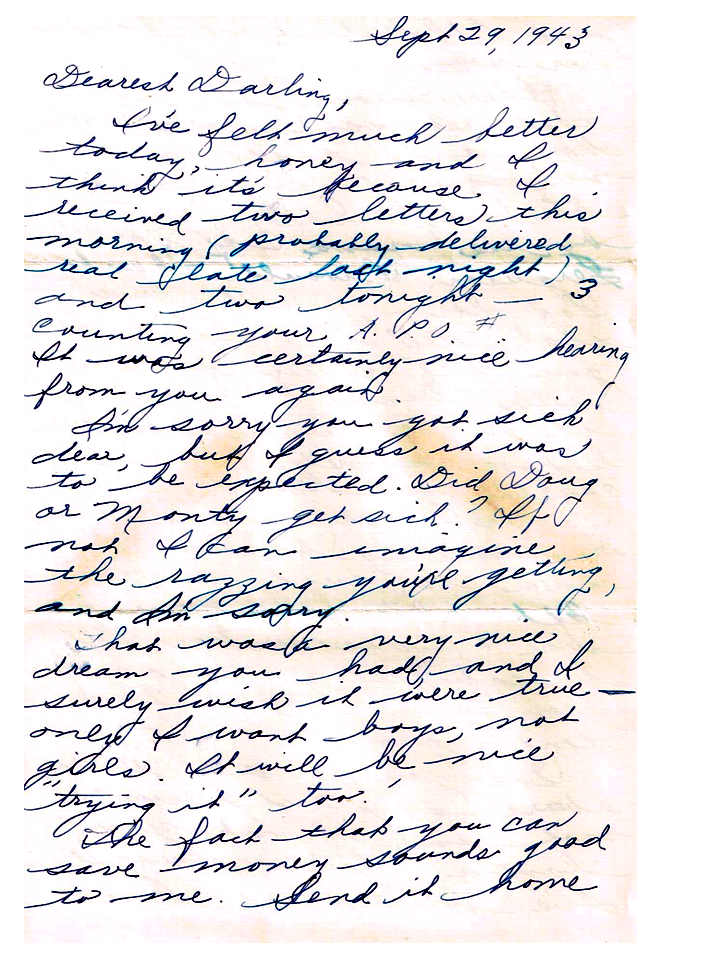 Sept 29, 1943
Dearest Darling,
I've felt much better
today, honey and I
think it's because I
received two letters this
morning (probably delivered
real late last night)
and two tonight — 3
counting your A.P.O #
It was certainly nice hearing
from you again.
I'm sorry you got sick
dear, but I guess it was
to be expected. Did Doug
or Monty get sick? If
not I can imagine
the razzing you're getting,
and I'm sorry.
That was a very nice
dream you had, and I
surely wish it were true —
only I want boys, not
girls. It will be nice
"trying it" too!
The fact that you can
save money sounds good
to me. Send it home